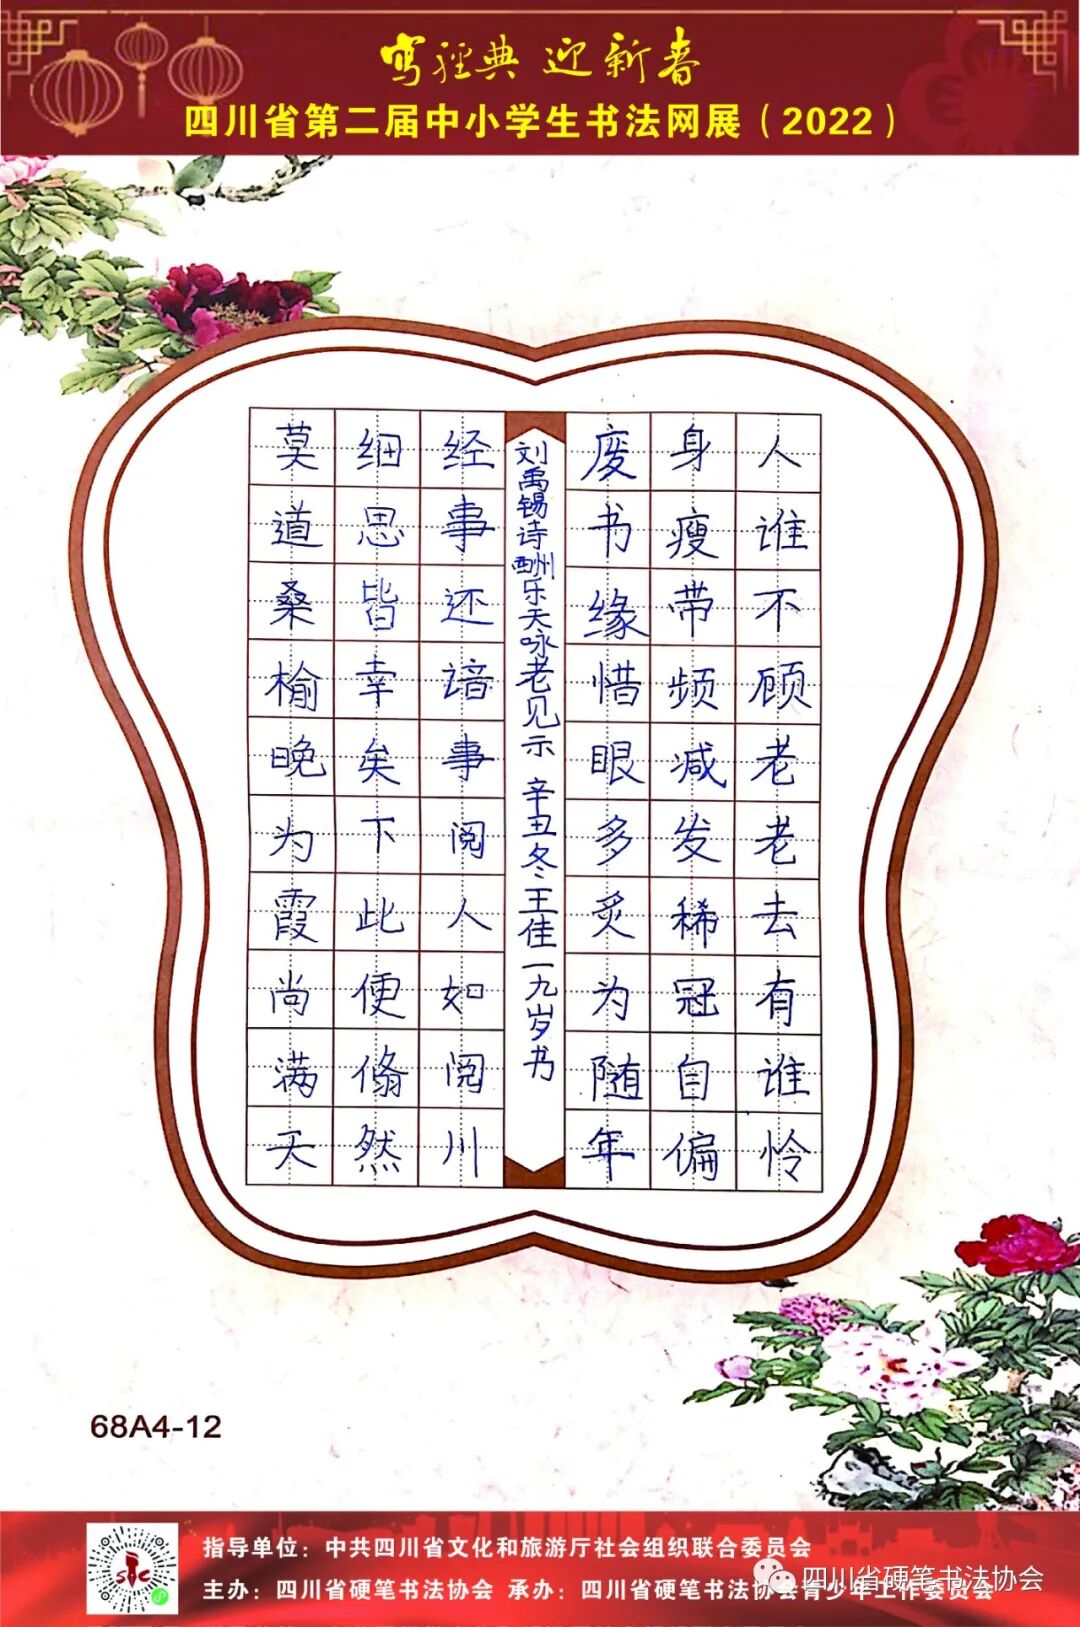 写经典 迎新春
四川省第二届中小学生书法网展（2022）
人谁不顾老老去有谁怜
身瘦带频减发稀冠自偏
废书缘惜眼多炙为随年
刘禹锡诗酬乐天咏老见示 辛丑冬王佳一九岁书
经事还谙事阅人如阅川
细思皆幸矣下此便翛然
莫道桑榆晚为霞尚满天
68A4-12
指导单位：中共四川省文化和旅游厅社会组织联合委员会
主办：四川省硬笔书法协会 承办：四川省硬笔书法协会青少年工作委员会
四川省硬笔书法协会